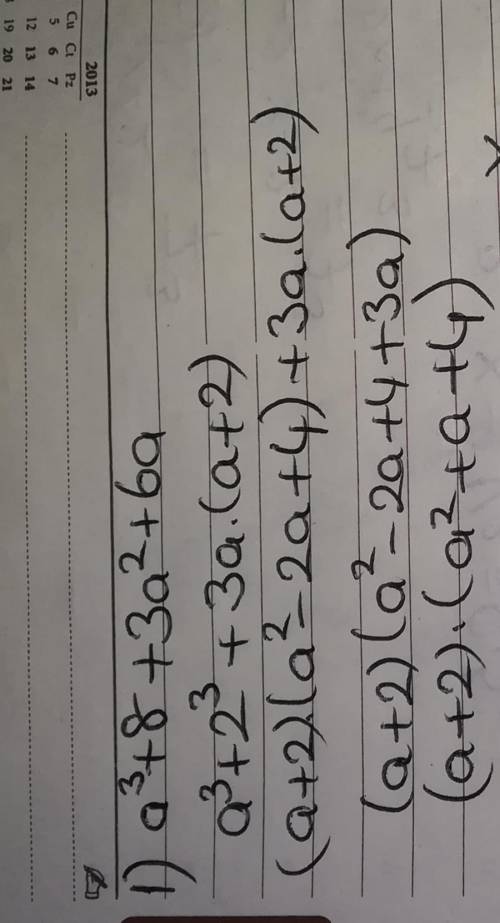 2013
Cu Ct Pz
5 6 7
12 13 14
19 20 21
1) a³+8+3a²+6a
a³+2³+3a.(a+2)
(a+2).(a²-2a+4)+3a.(a+2)
(a+2)(a²-2a+4+3a)
(a+2).(a²+a+4)